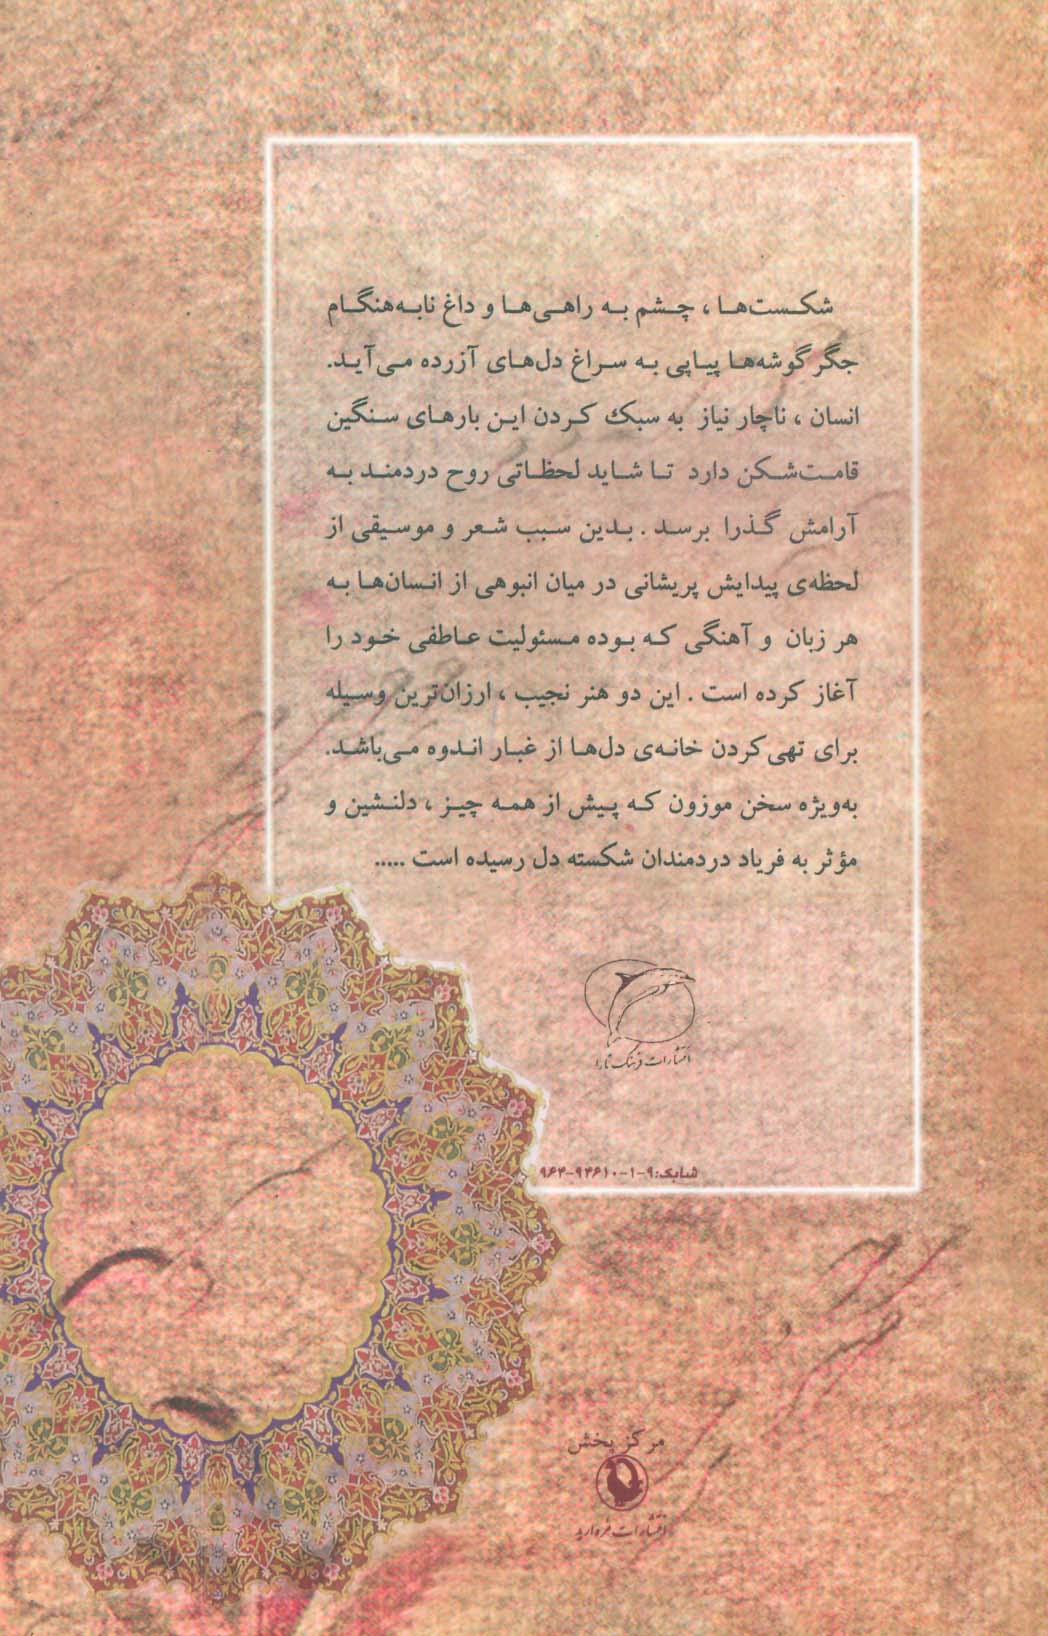 شکست‌ها ، چشم به راهی‌ها و داغ نابه‌هنگام
جگرگوشه‌ها پیاپی به سراغ دل‌های آزرده می‌آید.
انسان ، ناچار نیاز به سبک کردن این بارهای سنگین
قامت‌شکن دارد تا شاید لحظاتی روح دردمند به
آرامش گذرا برسد . بدین سبب شعر و موسیقی از
لحظه‌ی پیدایش پریشانی در میان انبوهی از انسان‌ها به
هر زبان و آهنگی که بوده مسئولیت عاطفی خود را
آغاز کرده است . این دو هنر نجیب ، ارزان‌ترین وسیله
برای تهی‌کردن خانه‌ی دل‌ها از غبار اندوه می‌باشد.
به‌ویژه سخن موزون که پیش از همه چیز ، دلنشین و
مؤثر به فریاد دردمندان شکسته دل رسیده است .....
انتشارات فرهنگ تارا
شابک:۹-۱-۹۴۶۱۰-۹۶۴
مرکز پخش
انتشارات مروارید